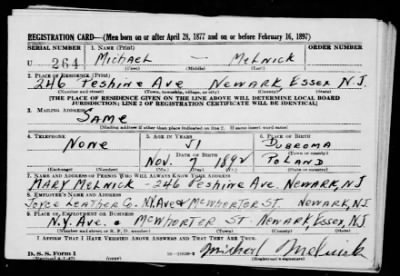 REGISTRATION CARD—(Men born on or after April 28, 1877 and on or before February 16, 1897)
SERIAL NUMBER 1. NAME (Print) ORDER NUMBER
U 264 MICHAEL — MELNICK
(First) (Middle) (Last)
2. PLACE OF RESIDENCE (Print)
246 Peshine Ave NEWARK ESSEX N.J.
(Number and street) (Town, township, village, or city) (County) (State)
[THE PLACE OF RESIDENCE GIVEN ON THE LINE ABOVE WILL DETERMINE LOCAL BOARD
JURISDICTION; LINE 2 OF REGISTRATION CERTIFICATE WILL BE IDENTICAL]
3. MAILING ADDRESS
SAME
[Mailing address if other than place indicated on line 2. If same insert word same]
4. TELEPHONE 5. AGE IN YEARS 6. PLACE OF BIRTH
NONE 51 DUBROMA
DATE OF BIRTH (Town or county)
NOV. 7 1892 POLAND
(Exchange) (Number) (Mo.) (Day) (Yr.) (State or country)
7. NAME AND ADDRESS OF PERSON WHO WILL ALWAYS KNOW YOUR ADDRESS
MARY MELNICK - 246 Peshine Ave. NEWARK, NJ
8. EMPLOYER'S NAME AND ADDRESS
JOYCE LEATHER CO. N.Y. AVE & MCWHORTER ST. NEWARK, NJ
9. PLACE OF EMPLOYMENT OR BUSINESS
N.Y. AVE. & MCWHORTER ST. NEWARK, ESSEX, NJ
(Number and street or R. F. D. number) (Town) (County) (State)
I AFFIRM THAT I HAVE VERIFIED ABOVE ANSWERS AND THAT THEY ARE TRUE.
D. S. S. Form 1 Michael Melnick